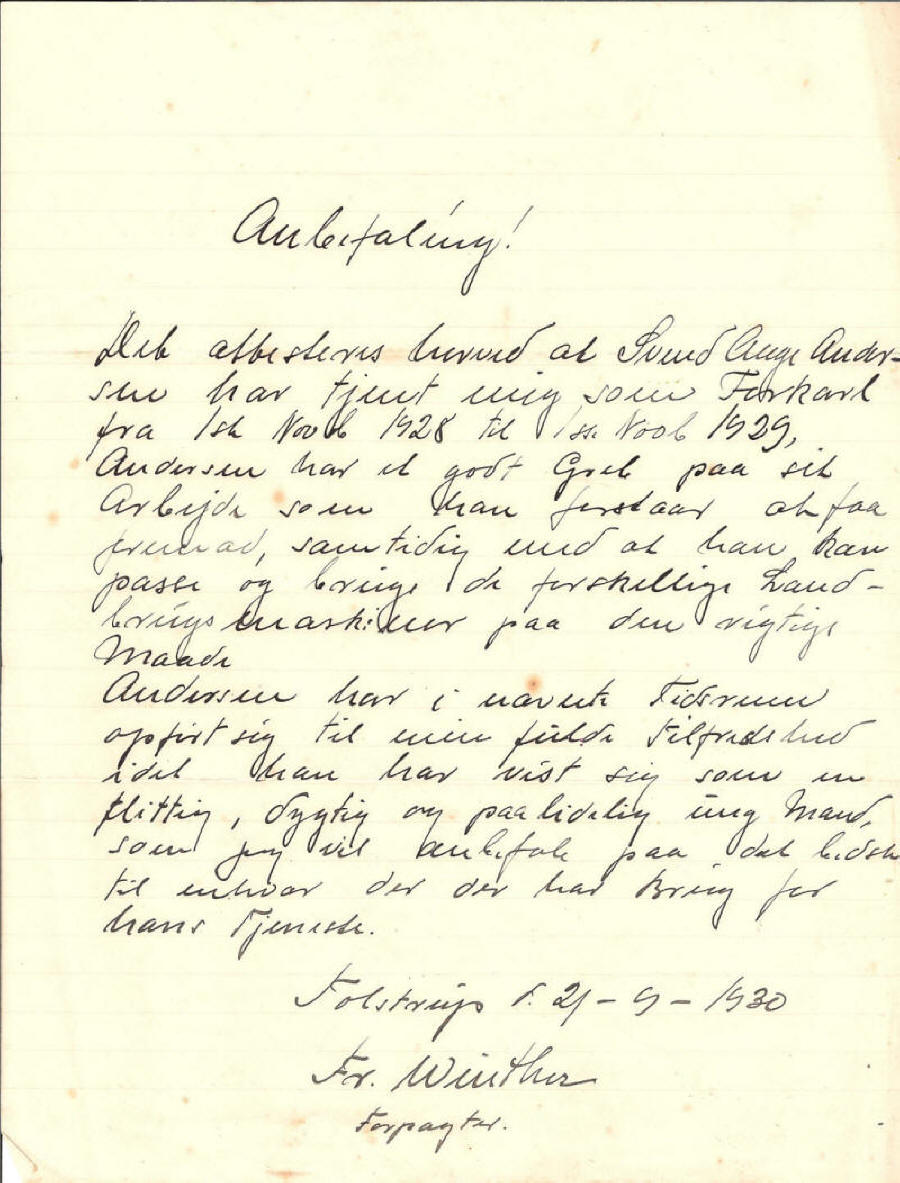 Anbefaling!
Det attesteres herved at Svend Aage Ander-
sen har tjent mig som Forkarl
fra 1ste Novb 1928 til 1ste Novb 1929,
Andersen har et godt Greb paa sit
Arbejde som han forstaar at faa
fremad, samtidig med at han kan
passe og bruge de forskellige Land-
brugsmaskiner paa den rigtige
Maade
Andersen har i nævnte Tidsrum
opført sig til min fulde Tilfredshed
idet han har vist sig som en
flittig, dygtig og paalidelig ung Mand,
som jeg vil anbefale paa det bedste
til enhver der der har Brug for
hans Tjeneste.
Tolstrup d. 21-9-1930
Fr. Winther
Forpagter.